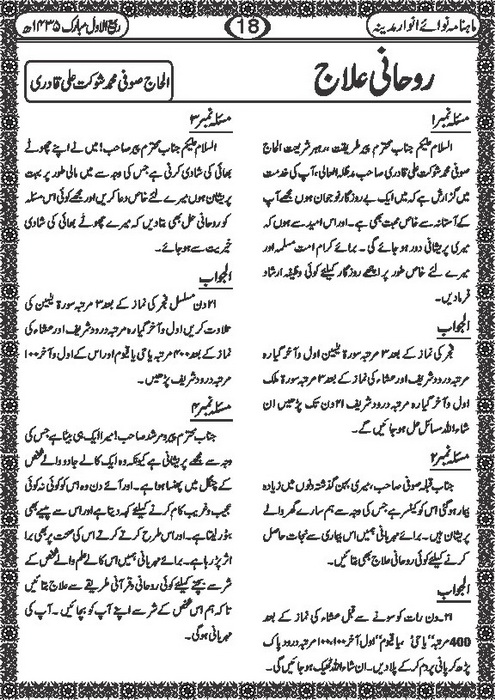 ماہنامہ نوائے انوار مدینہ
18
ربیع الاول مبارک ۱۴۳۵ھ
روحانی علاج
الحاج صوفی محمد شوکت علی قادری
مسئلہ نمبر ۱
السلام علیکم جناب محترم پیر طریقت، رہبر شریعت الحاج
صوفی محمد شوکت علی قادری صاحب مدظلہ العالی، آپ کی خدمت
میں گزارش ہے کہ میں ایک بے روزگار نوجوان ہوں مجھے آپ
کے آستانہ سے خاص محبت بھی ہے۔ اور اس امید سے ہوں کہ
میری پریشانی دور ہو جائے گی۔ برائے کرام امت مسلمہ اور
میرے لئے خاص طور پر اچھے روزگار کیلئے کوئی وظیفہ ارشاد
فرمادیں۔
الجواب
فجر کی نماز کے بعد ۳ مرتبہ سورۃ یٰسین اول و آخر گیارہ
مرتبہ درود شریف اور عشاء کی نماز کے بعد ۳ مرتبہ سورۃ ملک
اول و آخر گیارہ مرتبہ درود شریف ۲۱ دن تک پڑھیں ان
شاء اللہ مسائل حل ہو جائیں گے۔
مسئلہ نمبر ۲
جناب قبلہ صوفی صاحب، میری بہن گذشتہ دنوں میں زیادہ
بیمار ہو گئی اس کو کینسر ہے جس کی وجہ سے ہم سارے گھر والے
پریشان ہیں۔ برائے مہربانی ہمیں اس بیماری سے نجات حاصل
کرنے کیلئے کوئی روحانی علاج بھی بتائیں۔
الجواب
۲۱۔ دن رات کو سونے سے قبل عشاء کی نماز کے بعد
400 مرتبہ "یا حیُّ یا قیوم" اول آخر ۱۰۰،۱۰۰ مرتبہ درود پاک
پڑھ کر پانی پر دم کر کے پلا دیں۔ ان شاء اللہ ٹھیک ہو جائیں گی۔
مسئلہ نمبر ۳
السلام علیکم جناب محترم پیر صاحب! میں نے اپنے چھوٹے
بھائی کی شادی کرنی ہے جس کی وجہ سے میں مالی طور پر بہت
پریشان ہوں میرے لئے خاص دعا کریں اور مجھے کوئی اس مسئلہ
کو روحانی حل بھی بتا دیں کہ میرے چھوٹے بھائی کی شادی
خیریت سے ہو جائے۔
الجواب
۲۱ دن مسلسل فجر کی نماز کے بعد ۳ مرتبہ سورۃ یٰسین کی
تلاوت کریں اول و آخر گیارہ مرتبہ درود شریف اور عشاء کی
نماز کے بعد ۴۰۰ مرتبہ یا حی یا قیوم اور اس کے اول و آخر ۱۰۰
مرتبہ درود شریف پڑھیں۔
مسئلہ نمبر ۴
جناب محترم پیر و مرشد صاحب! میرا ایک ہی بیٹا ہے جس کی
وجہ سے مجھے پریشانی ہے کیونکہ وہ ایک کالے جادو والے شخص
کے چنگل میں پھنسا ہوا ہے۔ اور آئے دن وہ اس کو کوئی نہ کوئی
عجیب و غریب کام کرنے کیلئے کہہ دیتا ہے اور اس سے پیسے بھی
بٹور لیتا ہے۔ اور اس طرح کرتے کرتے اس کی صحت پر بھی برا
اثر پڑ رہا ہے۔ برائے مہربانی ہمیں اس کالے علم والے شخص کے
شر سے بچنے کیلئے کوئی روحانی و قرآنی طریقے سے علاج بتائیں
تاکہ ہم اس شخص کے شر سے اپنے آپ کو بچائیں۔ آپ کی
مہربانی ہو گی۔